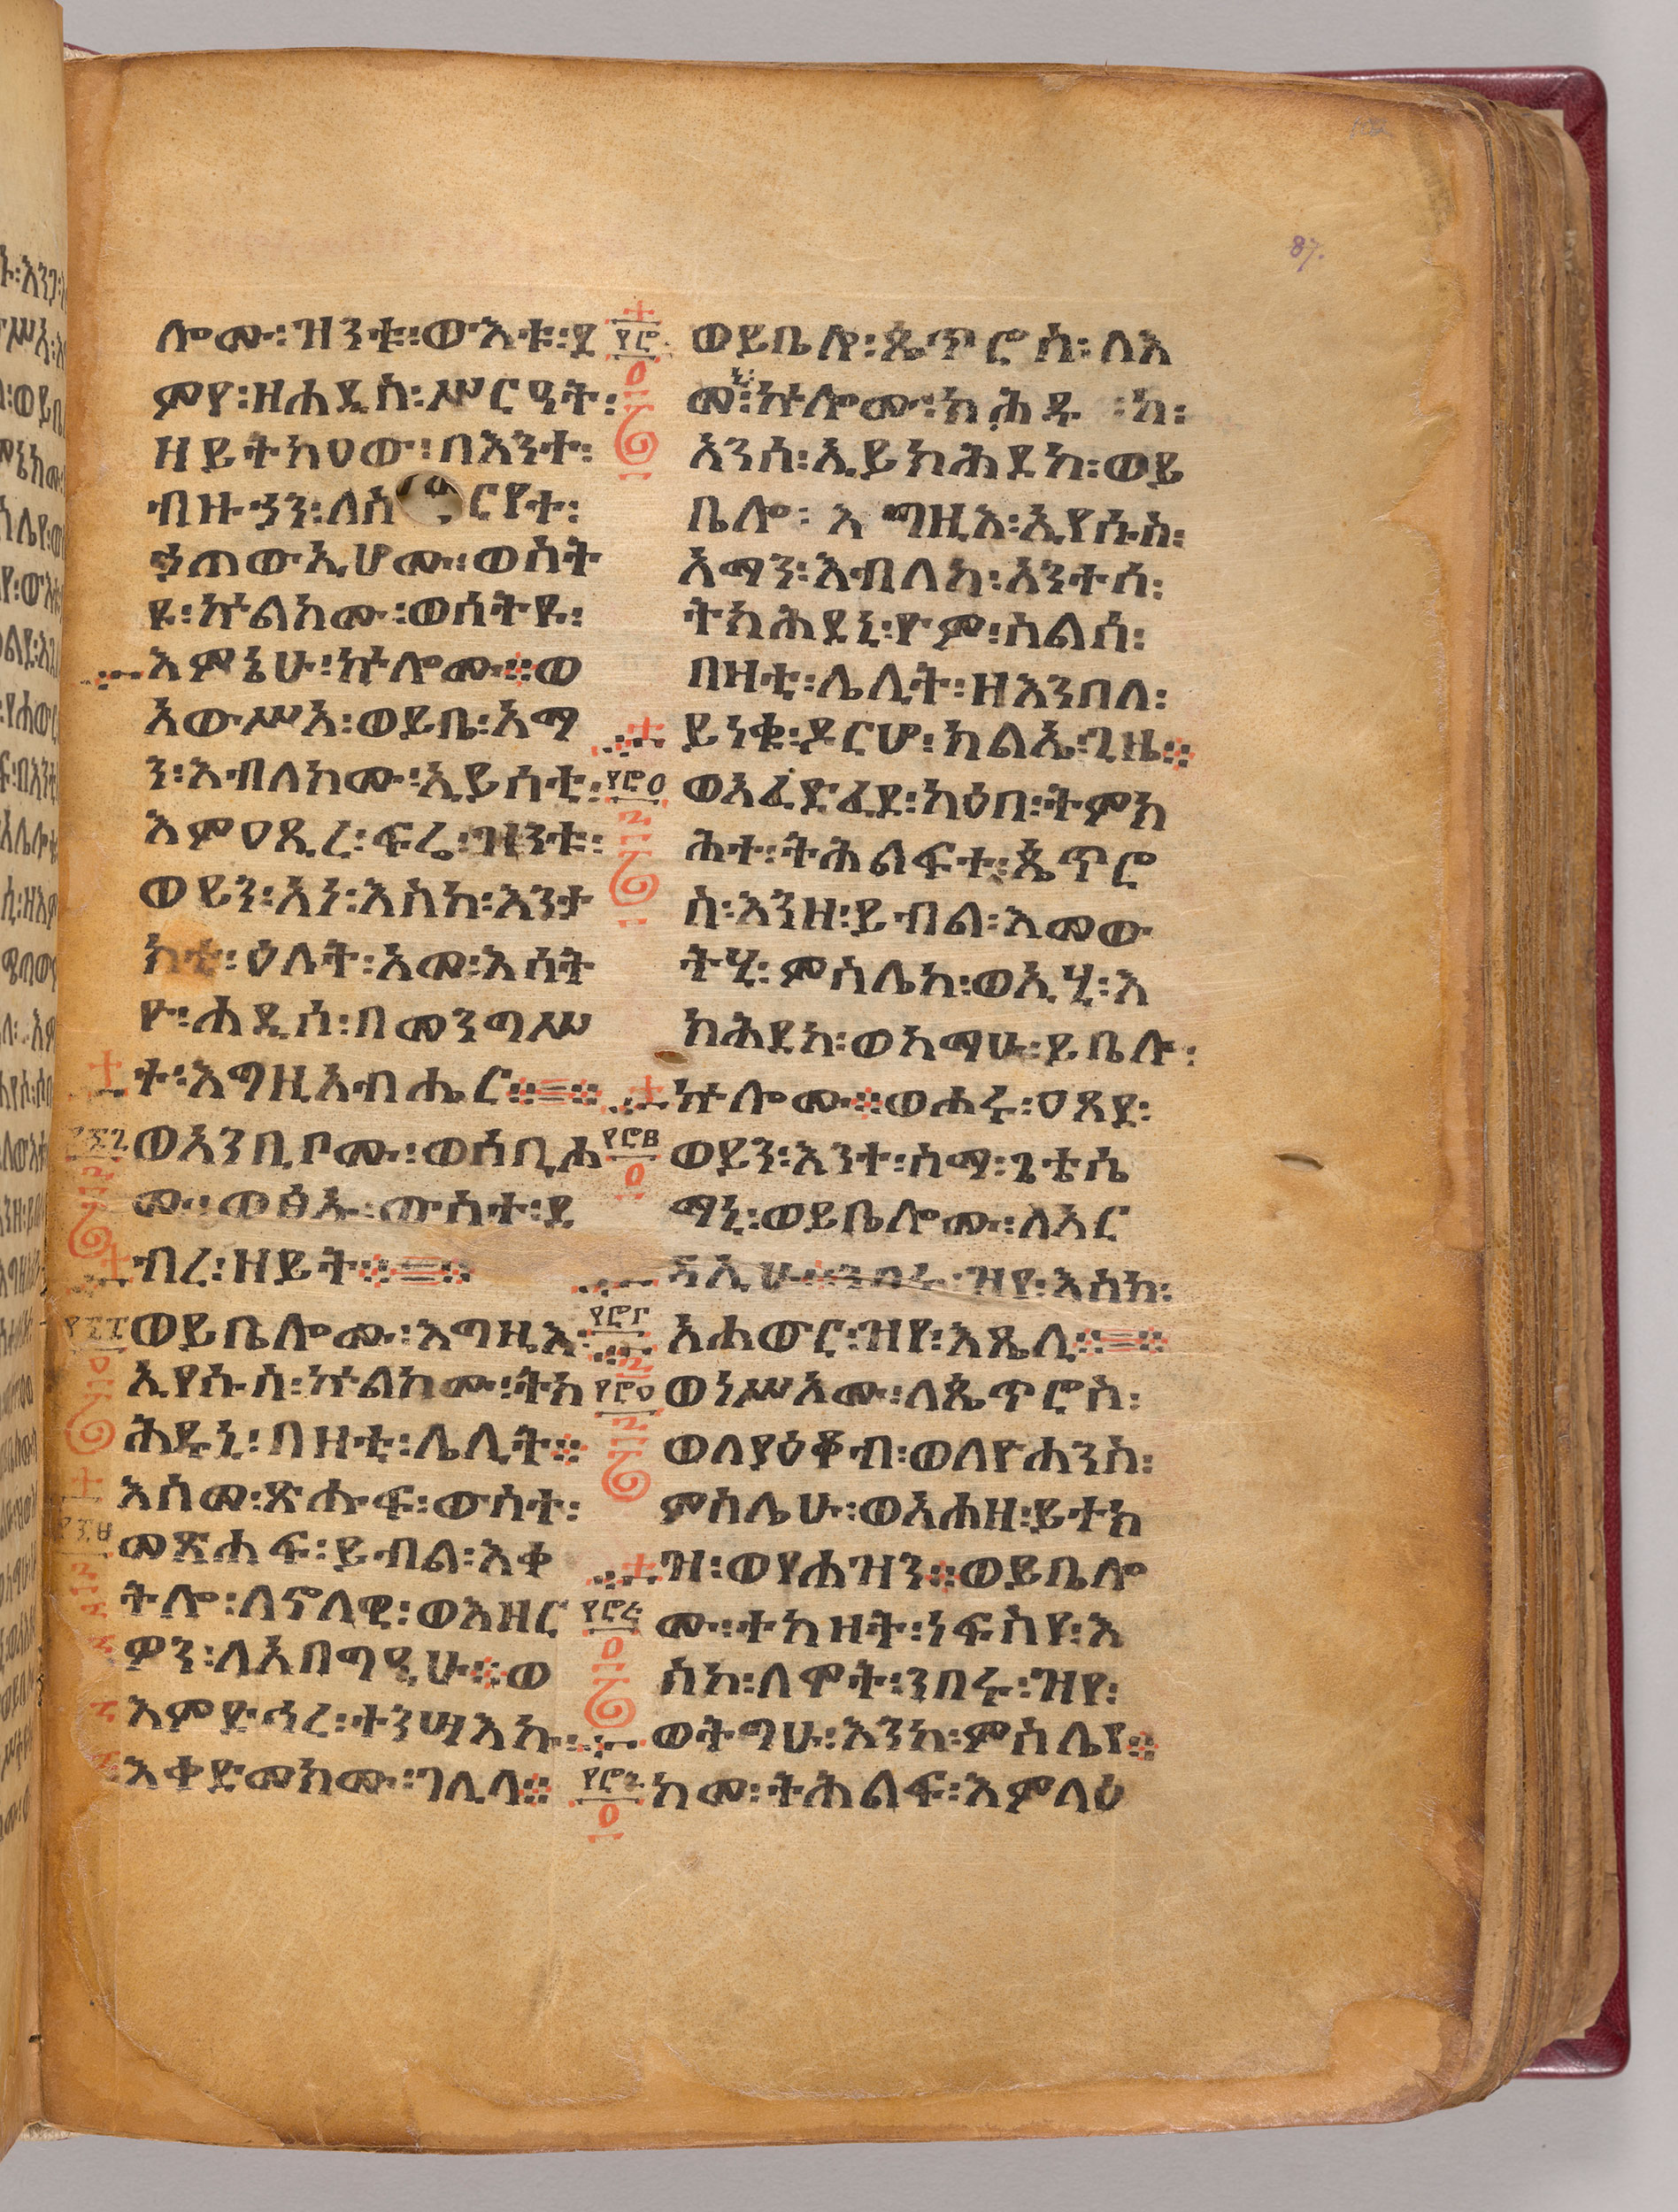 ሎሙ፡ዝንቱ፡ውእቱ፡ደ
ምየ፡ዘሐዲስ፡ሥርዓት፡
ዘይትከዐው፡በእንተ፡
ብዙኃን፡ለስ ርየተ፡
ኃጠውኢሆሙ፡ወስት
ዩ፡ኵልክሙ፡ወሰትዩ፡
እምኔሁ፡ኵሎሙ።ወ
አውሥአ፡ወይቤ፡አማ
ን፡እብለክሙ፡ኢይሰቲ፡
እምዐጺረ፡ፍሬ፡ዝንቱ፡
ወይን፡አነ፡እስከ፡እንታ
ክቲ፡ዕለት፡አመ፡እሰት
ዮ፡ሐዲሰ፡በመንግሥ
ተ፡እግዚአብሔር።=።
ወአንቢቦሙ፡ወሰቢሖ
ሙ፡ወፅኡ፡ውስተ፡ደ
ብረ፡ዘይት።=።
ወይቤሎሙ፡እግዚእ፡
ኢየሱስ፡ኵልክሙ፡ትክ
ሕዱኒ፡በዛቲ፡ሌሊት።
እስመ፡ጽሑፍ፡ውስተ፡
መጽሐፍ፡ይብል፡እቀ
ትሎ፡ለኖላዊ፡ወእዘር
ዎን፡ለአባግዒሁ።ወ
እምድኅረ፡ተንሣእኩ፡
እቀድመክሙ፡ገሊላ።
ወይቤሎ፡ጴጥሮስ፡ለእ
መ፡ኵሎሙ፡ክሕዱ ፡ከ፡
አንሰ፡ኢይክሕደከ፡ወይ
ቤሎ፡እግዚእ፡ኢየሱስ፡
አማን፡እብለከ፡አንተሰ፡
ትክሕደኒ፡ዮም፡ስልሰ፡
በዛቲ፡ሌሊት፡ዘእንበለ፡
ይነቁ፡ዶርሆ፡ክልኤ፡ጊዜ።
ወአፈድፈደ፡ክዕበ፡ትምክ
ሕተ፡ትሕልፍተ፡ጴጥሮ
ስ፡እንዘ፡ይብል፡እመው
ትሂ፡ምስሌከ፡ወኢሂ፡እ
ክሕደከ፡ወከማሁ፡ይቤሉ፡
ኵሎሙ።ወሖሩ፡ዐጸደ፡
ወይን፡እንተ፡ስማ፡ጌቴሴ
ማኒ፡ወይቤሎሙ፡ለአር
ዳኢሁ።ንበሩ፡ዝየ፡እስከ፡
አሐውር፡ዝየ፡እጼሊ።=።
ወነሥአሙ፡ለጴጥሮስ፡
ወለያዕቆብ፡ወለዮሐንስ፡
ምስሌሁ፡ወአሐዘ፡ይተክ
ዝ፡ወየሐዝን።ወይቤሎ
ሙ፡ተከዘት፡ነፍስየ፡እ
ስከ፡ለሞት፡ንበሩ፡ዝየ፡
ወትግሁ፡እንከ፡ምስሌየ።
ከመ፡ትሕልፍ፡እምላዕ
87.